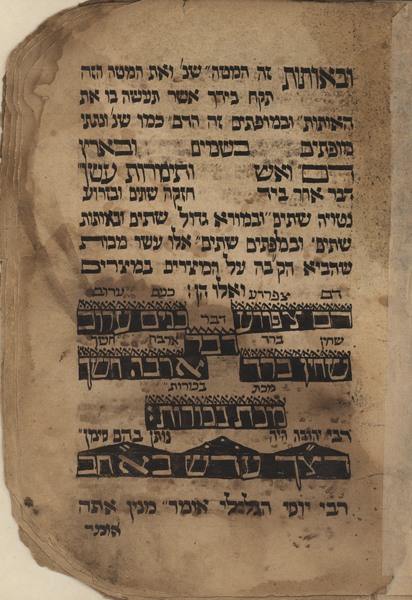 ובאותות זה המטה שנ׳ ואת המטה הזה
תקח בידך אשר תעשה בו את
האותות׃ ובמופתים זה הדם׳ כמו שנ׳ ונתתי
מופתים בשמים ובארץ
דם ואש ותימרות עשן׃
דבר אחר ביד חזקה שתים ובזרוע
נטויה שתים׳ ובמורא גדול שתים ובאותות
שתים׳ ובמפתים שתים׳ אלו עשר מכות
שהביא הקבה על המיצרים במיצרים
ואלו הן׃
דם צפרדע כנים ערוב
דם צפרדע כנים ערוב
דבר
דבר
שחין ברד ארבה חשך
שחין ברד ארבה חשך
מכת בכורות
מכת בכורות׃
רבי יהודה היה נותן בהם סימן
דצך עדש באחב
רבי יוסי הגלילי אומר׳ מנין אתה
אומר